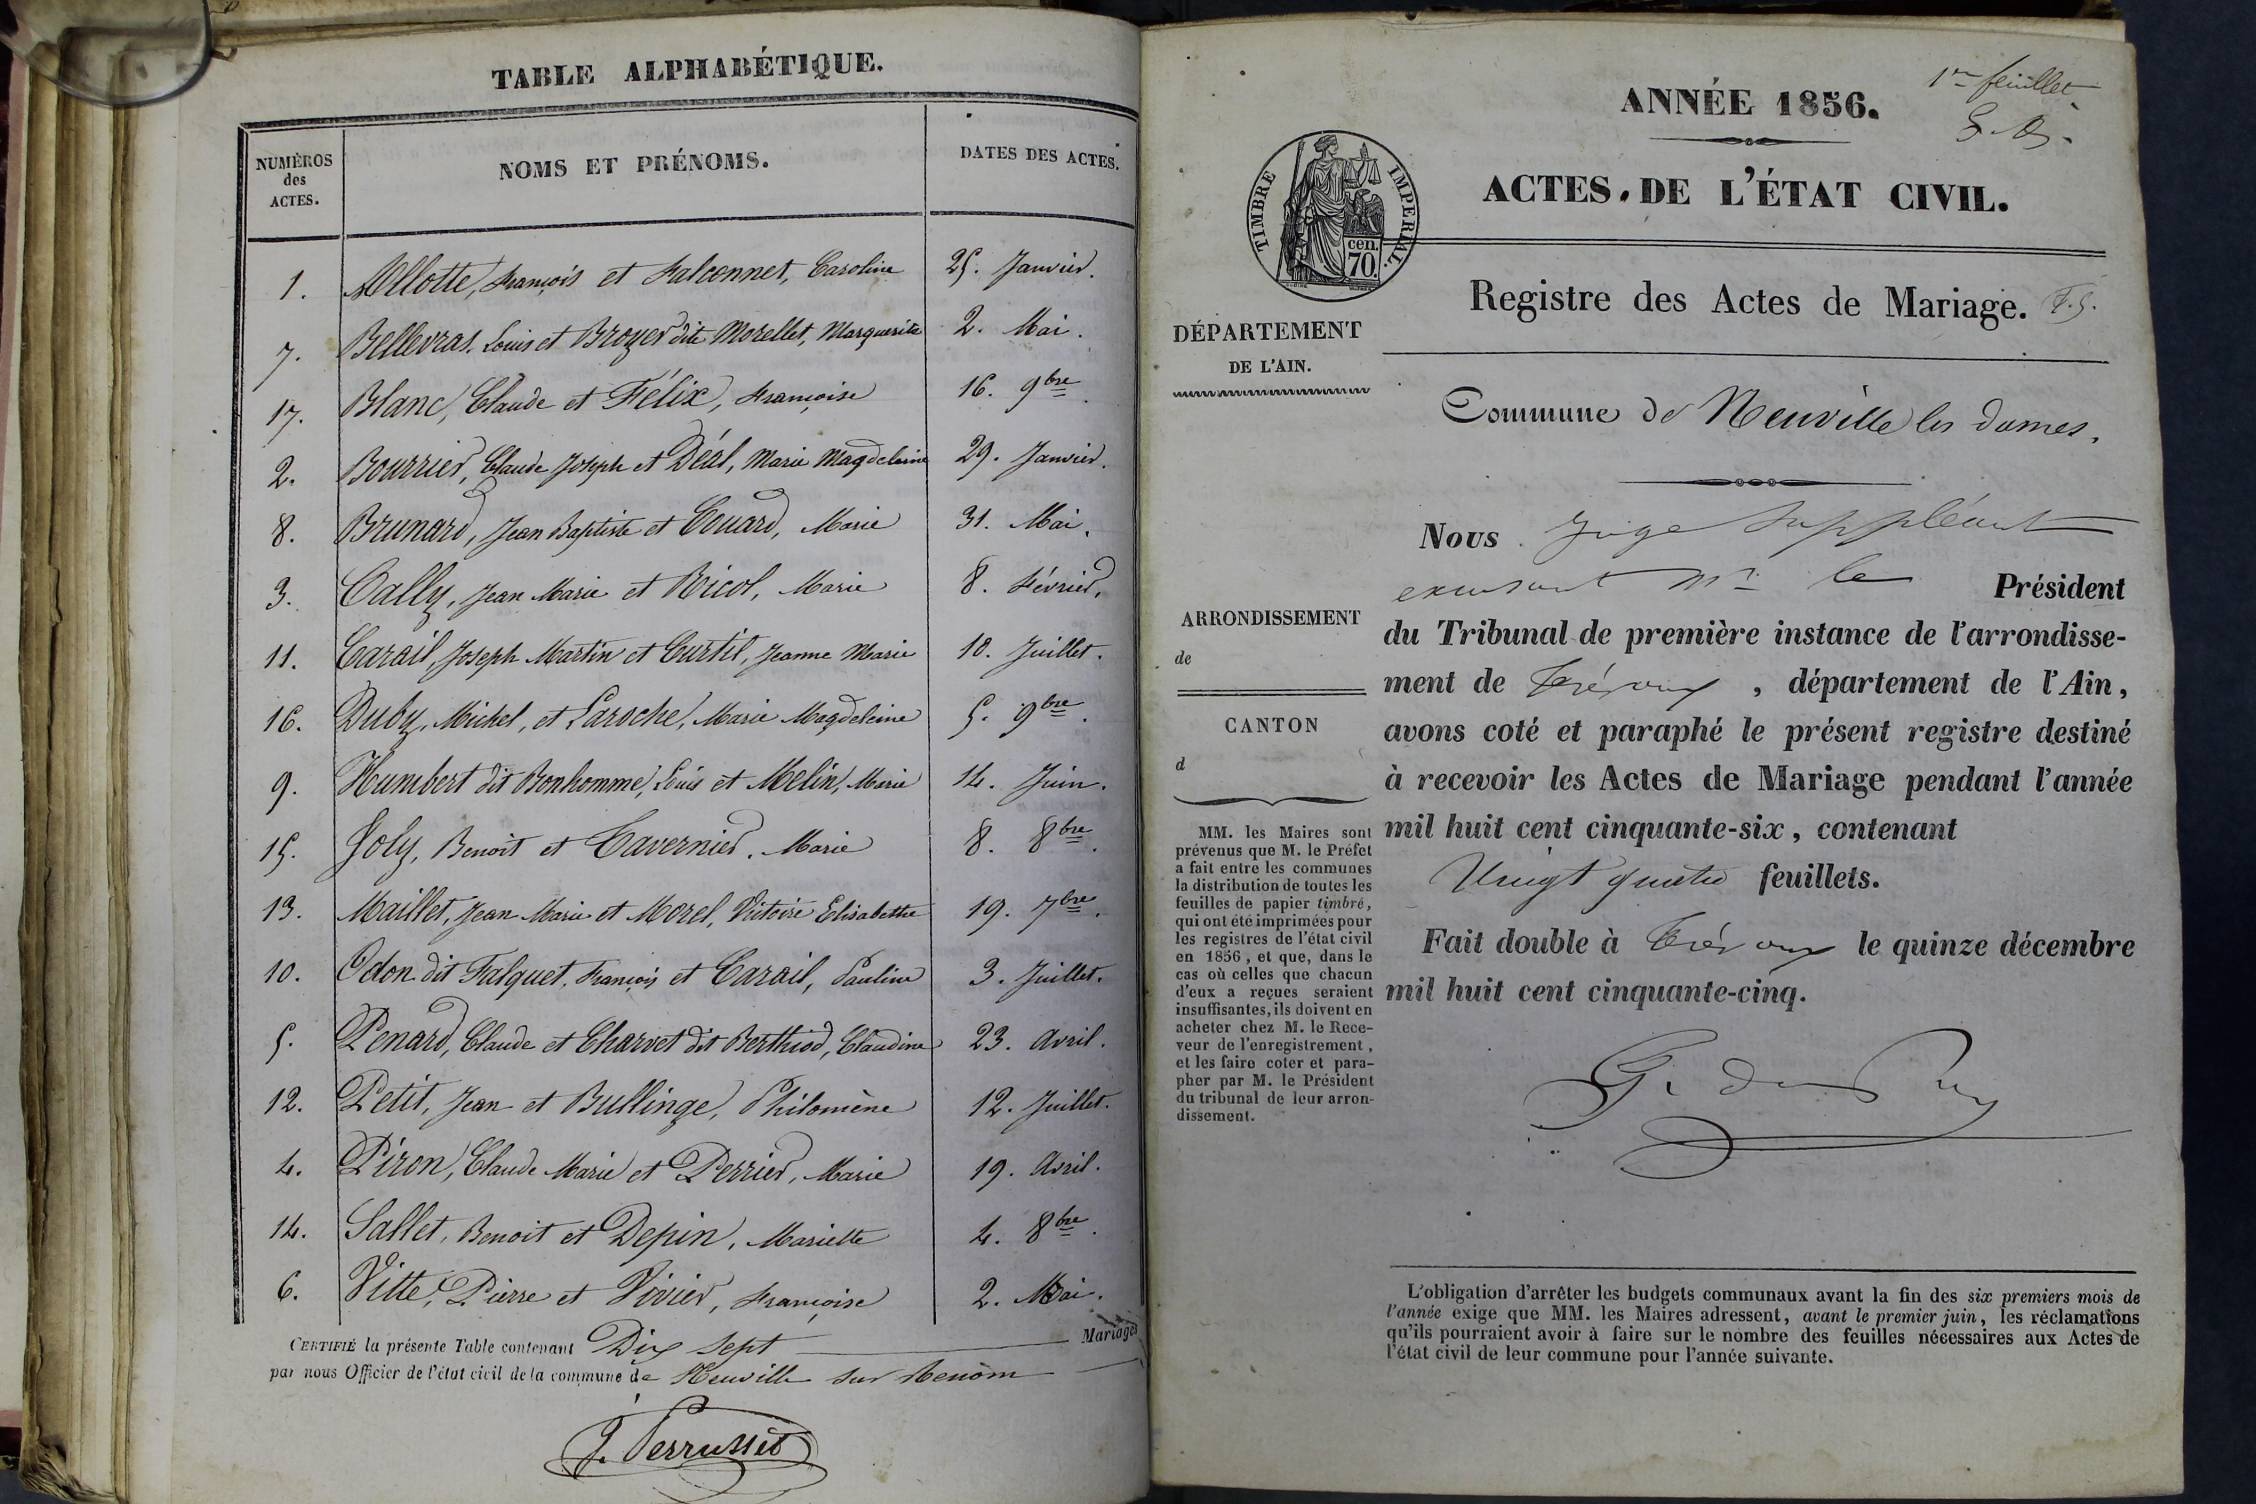 TABLE ALPHABÉTIQUE.
NUMÉROS des ACTES.
NOMS ET PRÉNOMS.
DATES DES ACTES.
1. Allotte, François et Falconnet, Caroline 25. Janvier.
7. Bellevras. Louis et Broyer dite Morellet, Marguerite 2. Mai.
17. Blanc, Claude et Félix, Françoise 16. 9bre.
2. Bourrier, Claude Joseph et Déal, Marie Magdeleine 29. Janvier.
8. Brunard, Jean Baptiste et Couard, Marie 31. Mai.
3. Cally, Jean Marie et Ricol, Marie 8. Février.
11. Carail, Joseph Martin et Curtil, Jeanne Marie 10. Juillet.
16. Duby, Michel, et Laroche, Marie Magdeleine 5. 9bre.
9. Humbert dit Bonhomme, Louis et Melin, Marie 14. Juin.
15. Joly, Benoit et Tavernier. Marie 8. 8bre.
13. Maillet, Jean Marie et Morel, Victoire Elisabethe 19. 7bre.
10. Odon dit Falquet, François et Carail, Pauline 3. Juillet.
5. Penard, Claude et Charvet dit Berthiod, Claudine 23. Avril.
12. Petit, Jean et Bullinge, Philomène 12. Juillet.
4. Piron, Claude Marie et Perrier, Marie 19. Avril.
14. Sallet, Benoit et Depin, Mariette 4. 8bre.
6. Vitte, Pierre et Vivier, Françoise 2. Mai.
CERTIFIÉ la présente Table contenant Dix sept Mariages
par nous Officier de l'état civil de la commune de Neuville sur Renom
J. Perrusset
1er feuillet
ANNÉE 1856.
ACTES DE L'ÉTAT CIVIL.
TIMBRE IMPÉRIAL.
cen. 70.
Registre des Actes de Mariage.
DÉPARTEMENT
DE L'AIN.
Commune de Neuville les Dames.
Nous Juge Suppléant
excusant Mr. le Président
du Tribunal de première instance de l'arrondisse-
ment de Trévoux, département de l'Ain,
avons coté et paraphé le présent registre destiné
à recevoir les Actes de Mariage pendant l'année
mil huit cent cinquante-six, contenant
Vingt quatre feuillets.
Fait double à Trévoux le quinze décembre
mil huit cent cinquante-cinq.
ARRONDISSEMENT
de
CANTON
d
MM. les Maires sont
prévenus que M. le Préfet
a fait entre les communes
la distribution de toutes les
feuilles de papier timbré,
qui ont été imprimées pour
les registres de l'état civil
en 1856, et que, dans le
cas où celles que chacun
d'eux a reçues seraient
insuffisantes, ils doivent en
acheter chez M. le Rece-
veur de l'enregistrement,
et les faire coter et para-
pher par M. le Président
du tribunal de leur arron-
dissement.
L'obligation d'arrêter les budgets communaux avant la fin des six premiers mois de
l'année exige que MM. les Maires adressent, avant le premier juin, les réclamations
qu'ils pourraient avoir à faire sur le nombre des feuilles nécessaires aux Actes de
l'état civil de leur commune pour l'année suivante.